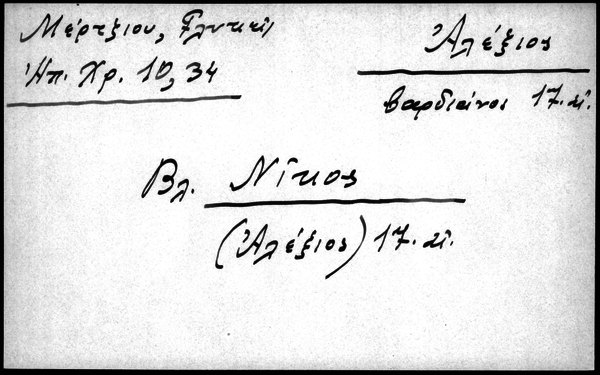 Μέρτζιου, Γλυκεῖς
Ἠπ. Χρ. 10, 34
Ἀλέξιος
βαρδιάνος 17. αἰ.
Βλ. Νῖκος
(Ἀλέξιος) 17. αἰ.